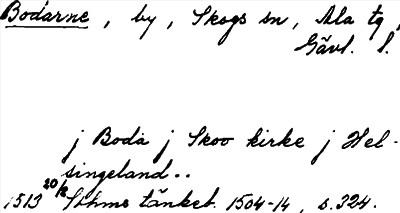 Bodarne, by, Skogs sn, Ala tg,
Gävl. l.
j Boda j Skoo kirke j Hel-
singeland..
1513 20/2 Sthms tänkeb. 1504-14, s. 324.